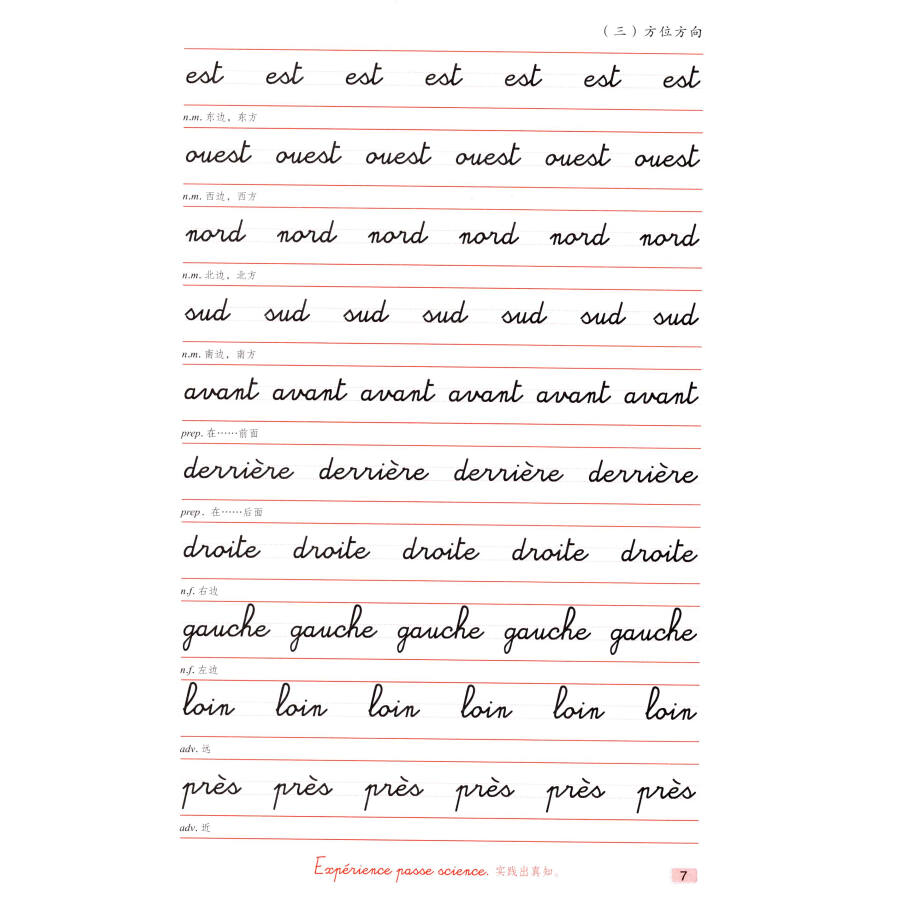 （三）方位方向
est est est est est est est
n.m. 东边，东方
ouest ouest ouest ouest ouest ouest
n.m. 西边，西方
nord nord nord nord nord nord
n.m. 北边，北方
sud sud sud sud sud sud sud
n.m. 南边，南方
avant avant avant avant avant avant
prep. 在……前面
derrière derrière derrière derrière
prep. 在……后面
droite droite droite droite droite
n.f. 右边
gauche gauche gauche gauche gauche
n.f. 左边
loin loin loin loin loin loin
adv. 远
près près près près près près
adv. 近
Expérience passe science. 实践出真知。
7